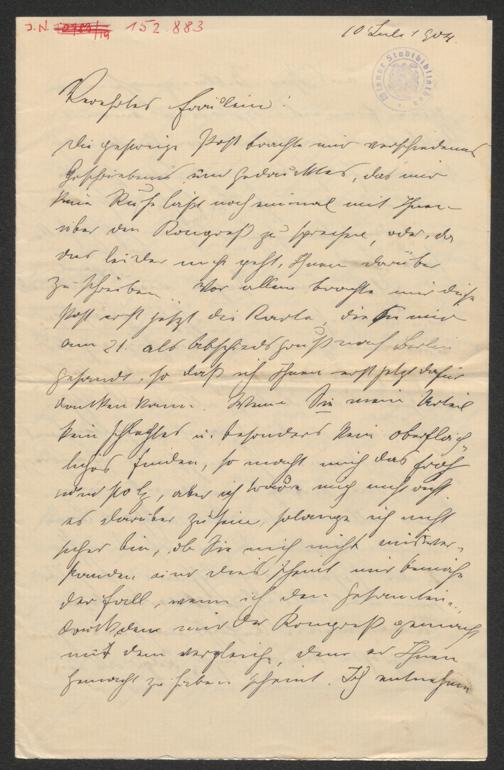 J.N. 152.883
10 Juli 1904.
Wiener Stadtbibliothek
Verehrtes Fräulein!
Die gestrige Post brachte mir verschiedenes
Geschriebenes und Gedrucktes, das mir
keine Ruhe läßt noch einmal mit Ihnen
über den Kongreß zu sprechen, oder, da
das leider nicht geht, Ihnen darüber
zu schreiben. Vor allem brachte mir diese
Post erst jetzt die Karte, die Sie mir
am 21. als Abschiedsgruß nach Berlin
gesandt, so daß ich Ihnen erst jetzt dafür
danken kann. Wenn Sie mein Urteil
kein schlechtes u. besonders kein oberfläch-
liches finden, so macht mich das froh
und stolz, aber ich wage mich nicht recht
es darüber zu sein, solange ich nicht
sicher bin, ob Sie mich nicht mißver-
standen und dies scheint mir beinahe
der Fall, wenn ich den Gesamtein-
druck, den mir der Kongreß gemacht
mit dem vergleiche, den er Ihnen
gemacht zu haben scheint. Ich entnehme